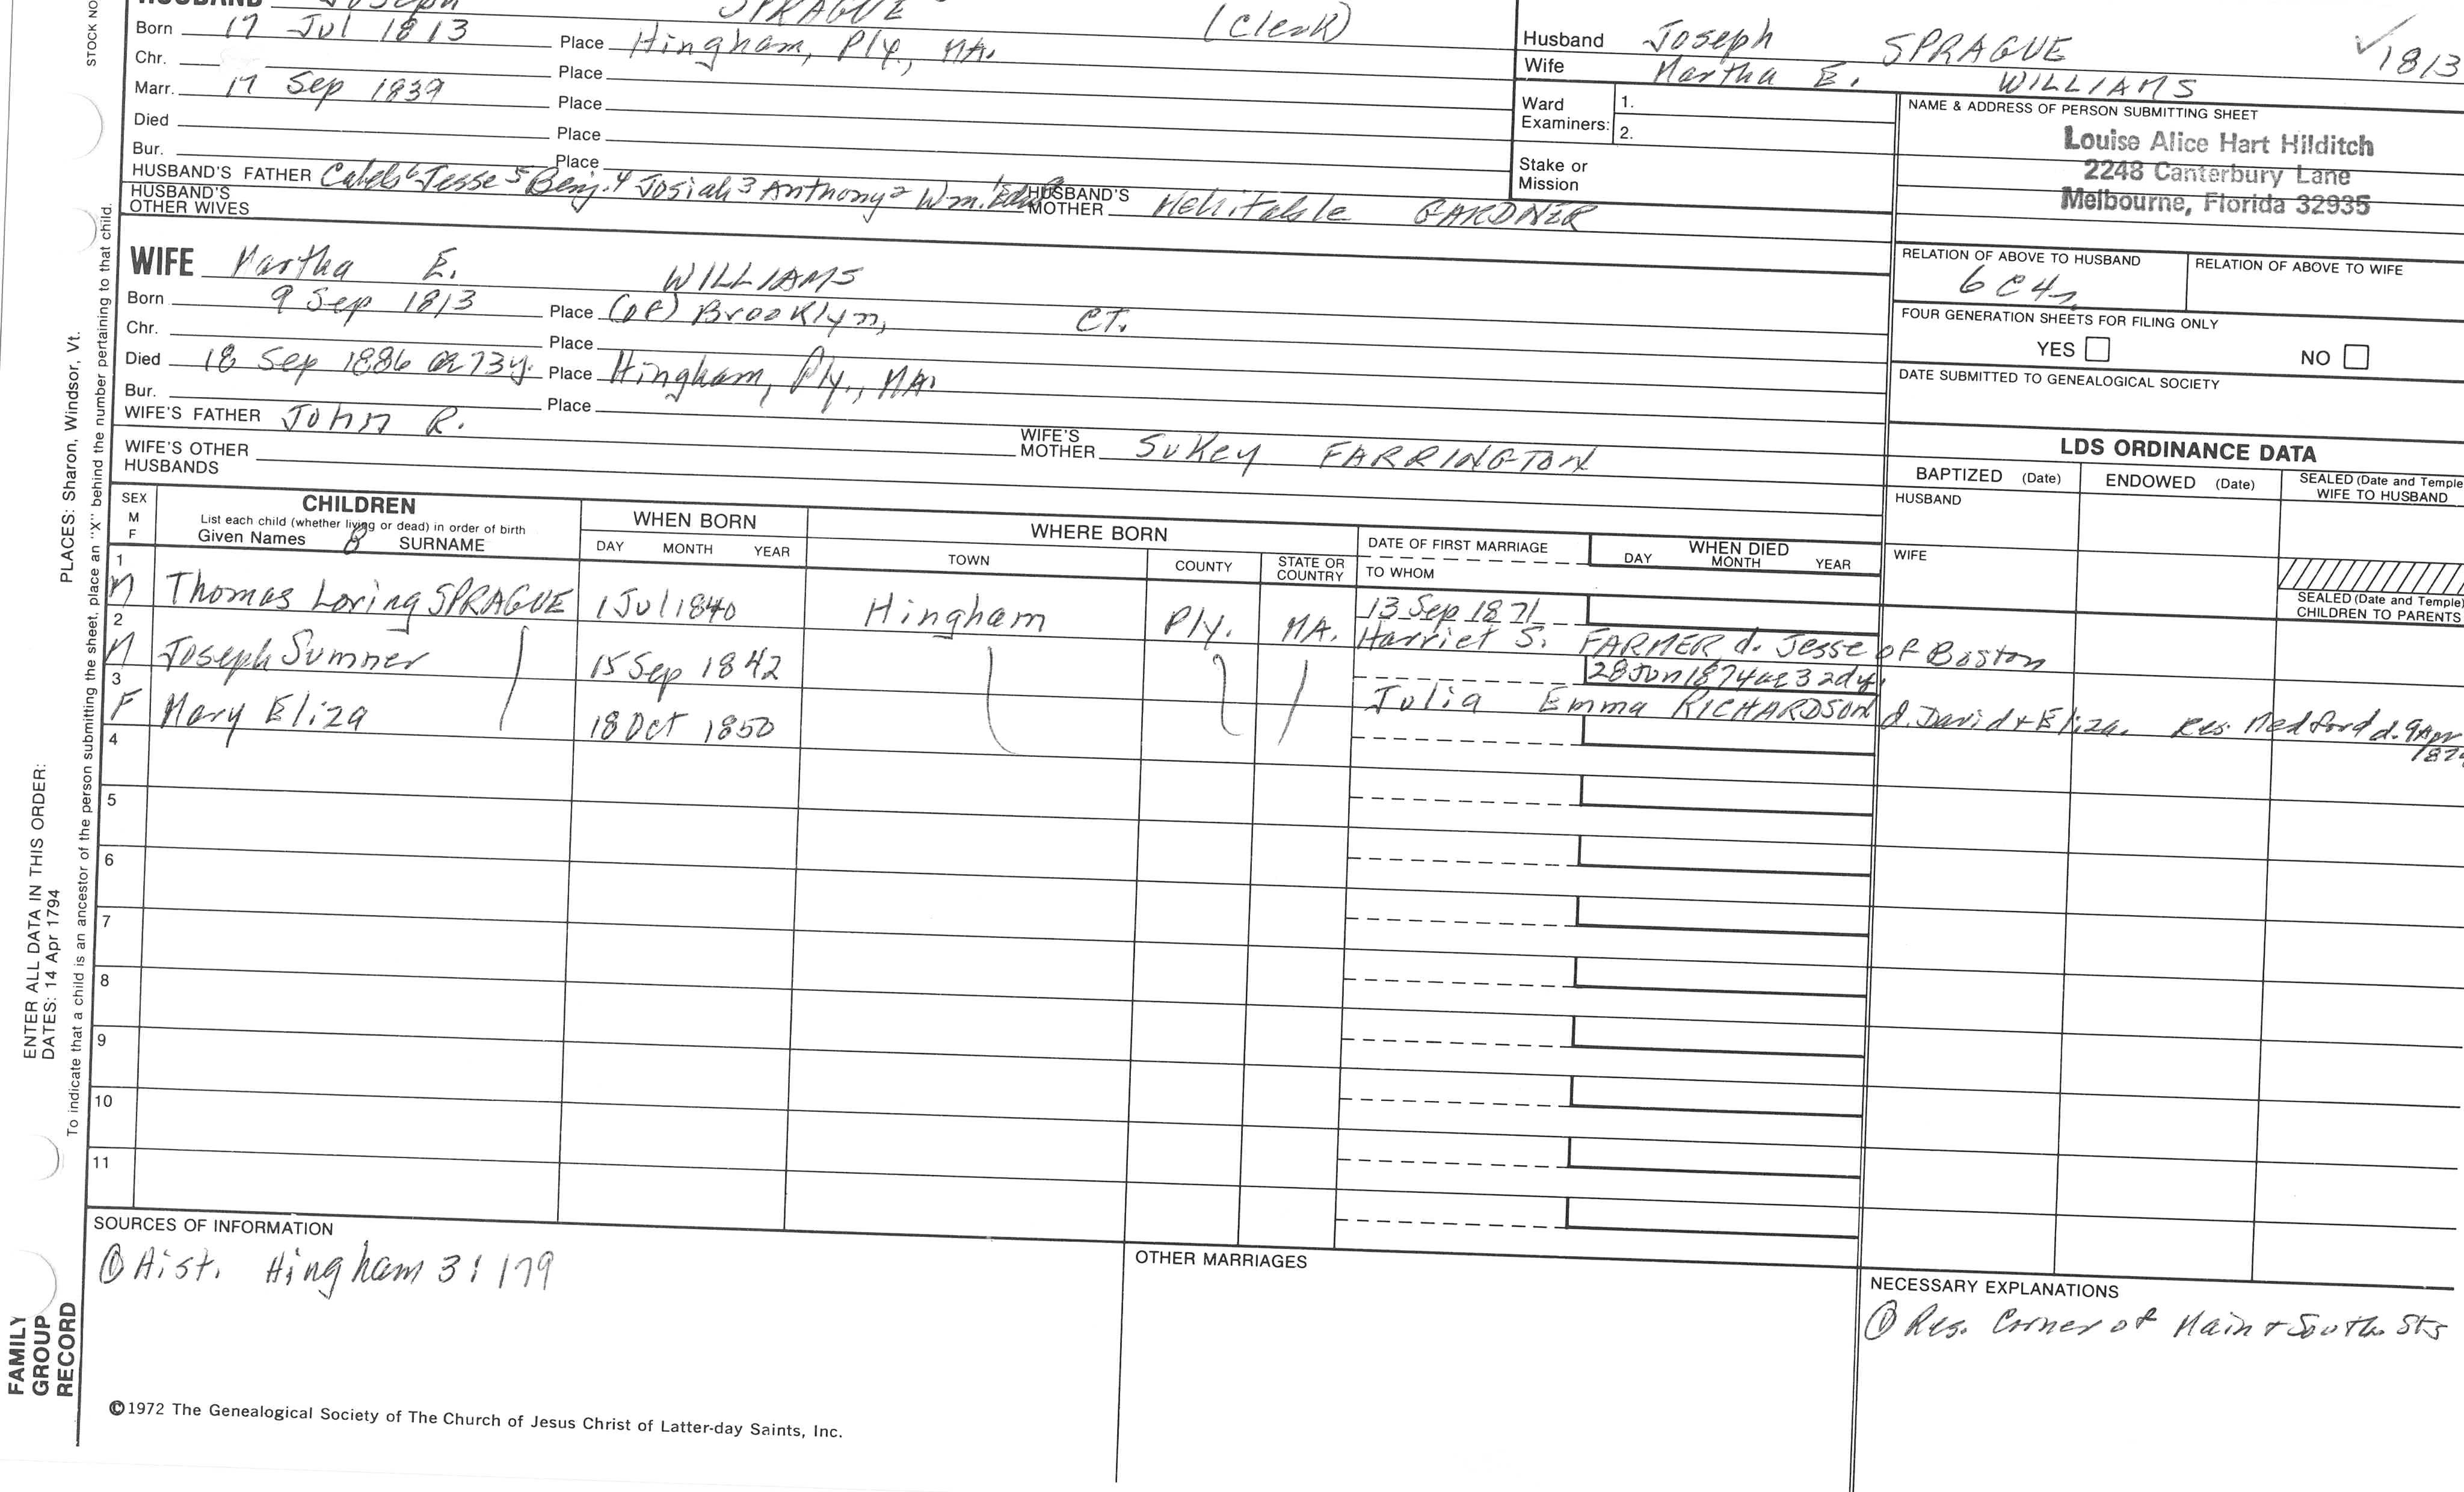 HUSBAND Joseph SPRAGUE (Clerk)
Born 17 Jul 1813 Place Hingham, Ply., MA.
Chr. Place
Marr. 17 Sep 1839 Place
Died Place
Bur. Place
HUSBAND'S FATHER Caleb6 Jesse5 Benj.4 Josiah3 Anthony2 Wm.1 HUSBAND'S MOTHER Mehitable GARDNER
HUSBAND'S OTHER WIVES
WIFE Martha E. WILLIAMS
Born 9 Sep 1813 Place (of) Brooklyn, CT.
Chr. Place
Died 18 Sep 1886 ae 73y. Place Hingham, Ply., MA.
Bur. Place
WIFE'S FATHER John R. WIFE'S MOTHER Sukey FARRINGTON
WIFE'S OTHER HUSBANDS
Husband Joseph SPRAGUE ✓1813
Wife Martha E. WILLIAMS
Ward Examiners: 1.
2.
Stake or Mission
NAME & ADDRESS OF PERSON SUBMITTING SHEET
Louise Alice Hart Hilditch
2248 Canterbury Lane
Melbourne, Florida 32935
RELATION OF ABOVE TO HUSBAND RELATION OF ABOVE TO WIFE
6C4r
FOUR GENERATION SHEETS FOR FILING ONLY
YES NO
DATE SUBMITTED TO GENEALOGICAL SOCIETY
LDS ORDINANCE DATA
BAPTIZED (Date) ENDOWED (Date) SEALED (Date and Temple) WIFE TO HUSBAND
HUSBAND
WIFE
SEALED (Date and Temple) CHILDREN TO PARENTS
SEX M F
CHILDREN
List each child (whether living or dead) in order of birth
Given Names SURNAME
WHEN BORN
DAY MONTH YEAR
WHERE BORN
TOWN COUNTY STATE OR COUNTRY
DATE OF FIRST MARRIAGE
TO WHOM
WHEN DIED
DAY MONTH YEAR
1 M Thomas Loring SPRAGUE 1 Jul 1840 Hingham Ply. MA. 13 Sep 1871
Harriet S. FARMER d. Jesse of Boston
2 M Joseph Sumner 15 Sep 1842 28 Jun 1874
Julia Emma RICHARDSON d. David + Eliza. Res. Medford d. 9 Apr
3 F Mary Eliza 18 Oct 1850
4
5
6
7
8
9
10
11
SOURCES OF INFORMATION
① Hist. Hingham 3:179
OTHER MARRIAGES
NECESSARY EXPLANATIONS
① Res. Corner of Main + South Sts
©1972 The Genealogical Society of The Church of Jesus Christ of Latter-day Saints, Inc.
STOCK NO
PLACES: Sharon, Windsor, Vt.
To indicate that a child is an ancestor of the person submitting the sheet, place an "X" behind the number pertaining to that child.
ENTER ALL DATA IN THIS ORDER:
DATES: 14 Apr 1794
FAMILY
GROUP
RECORD